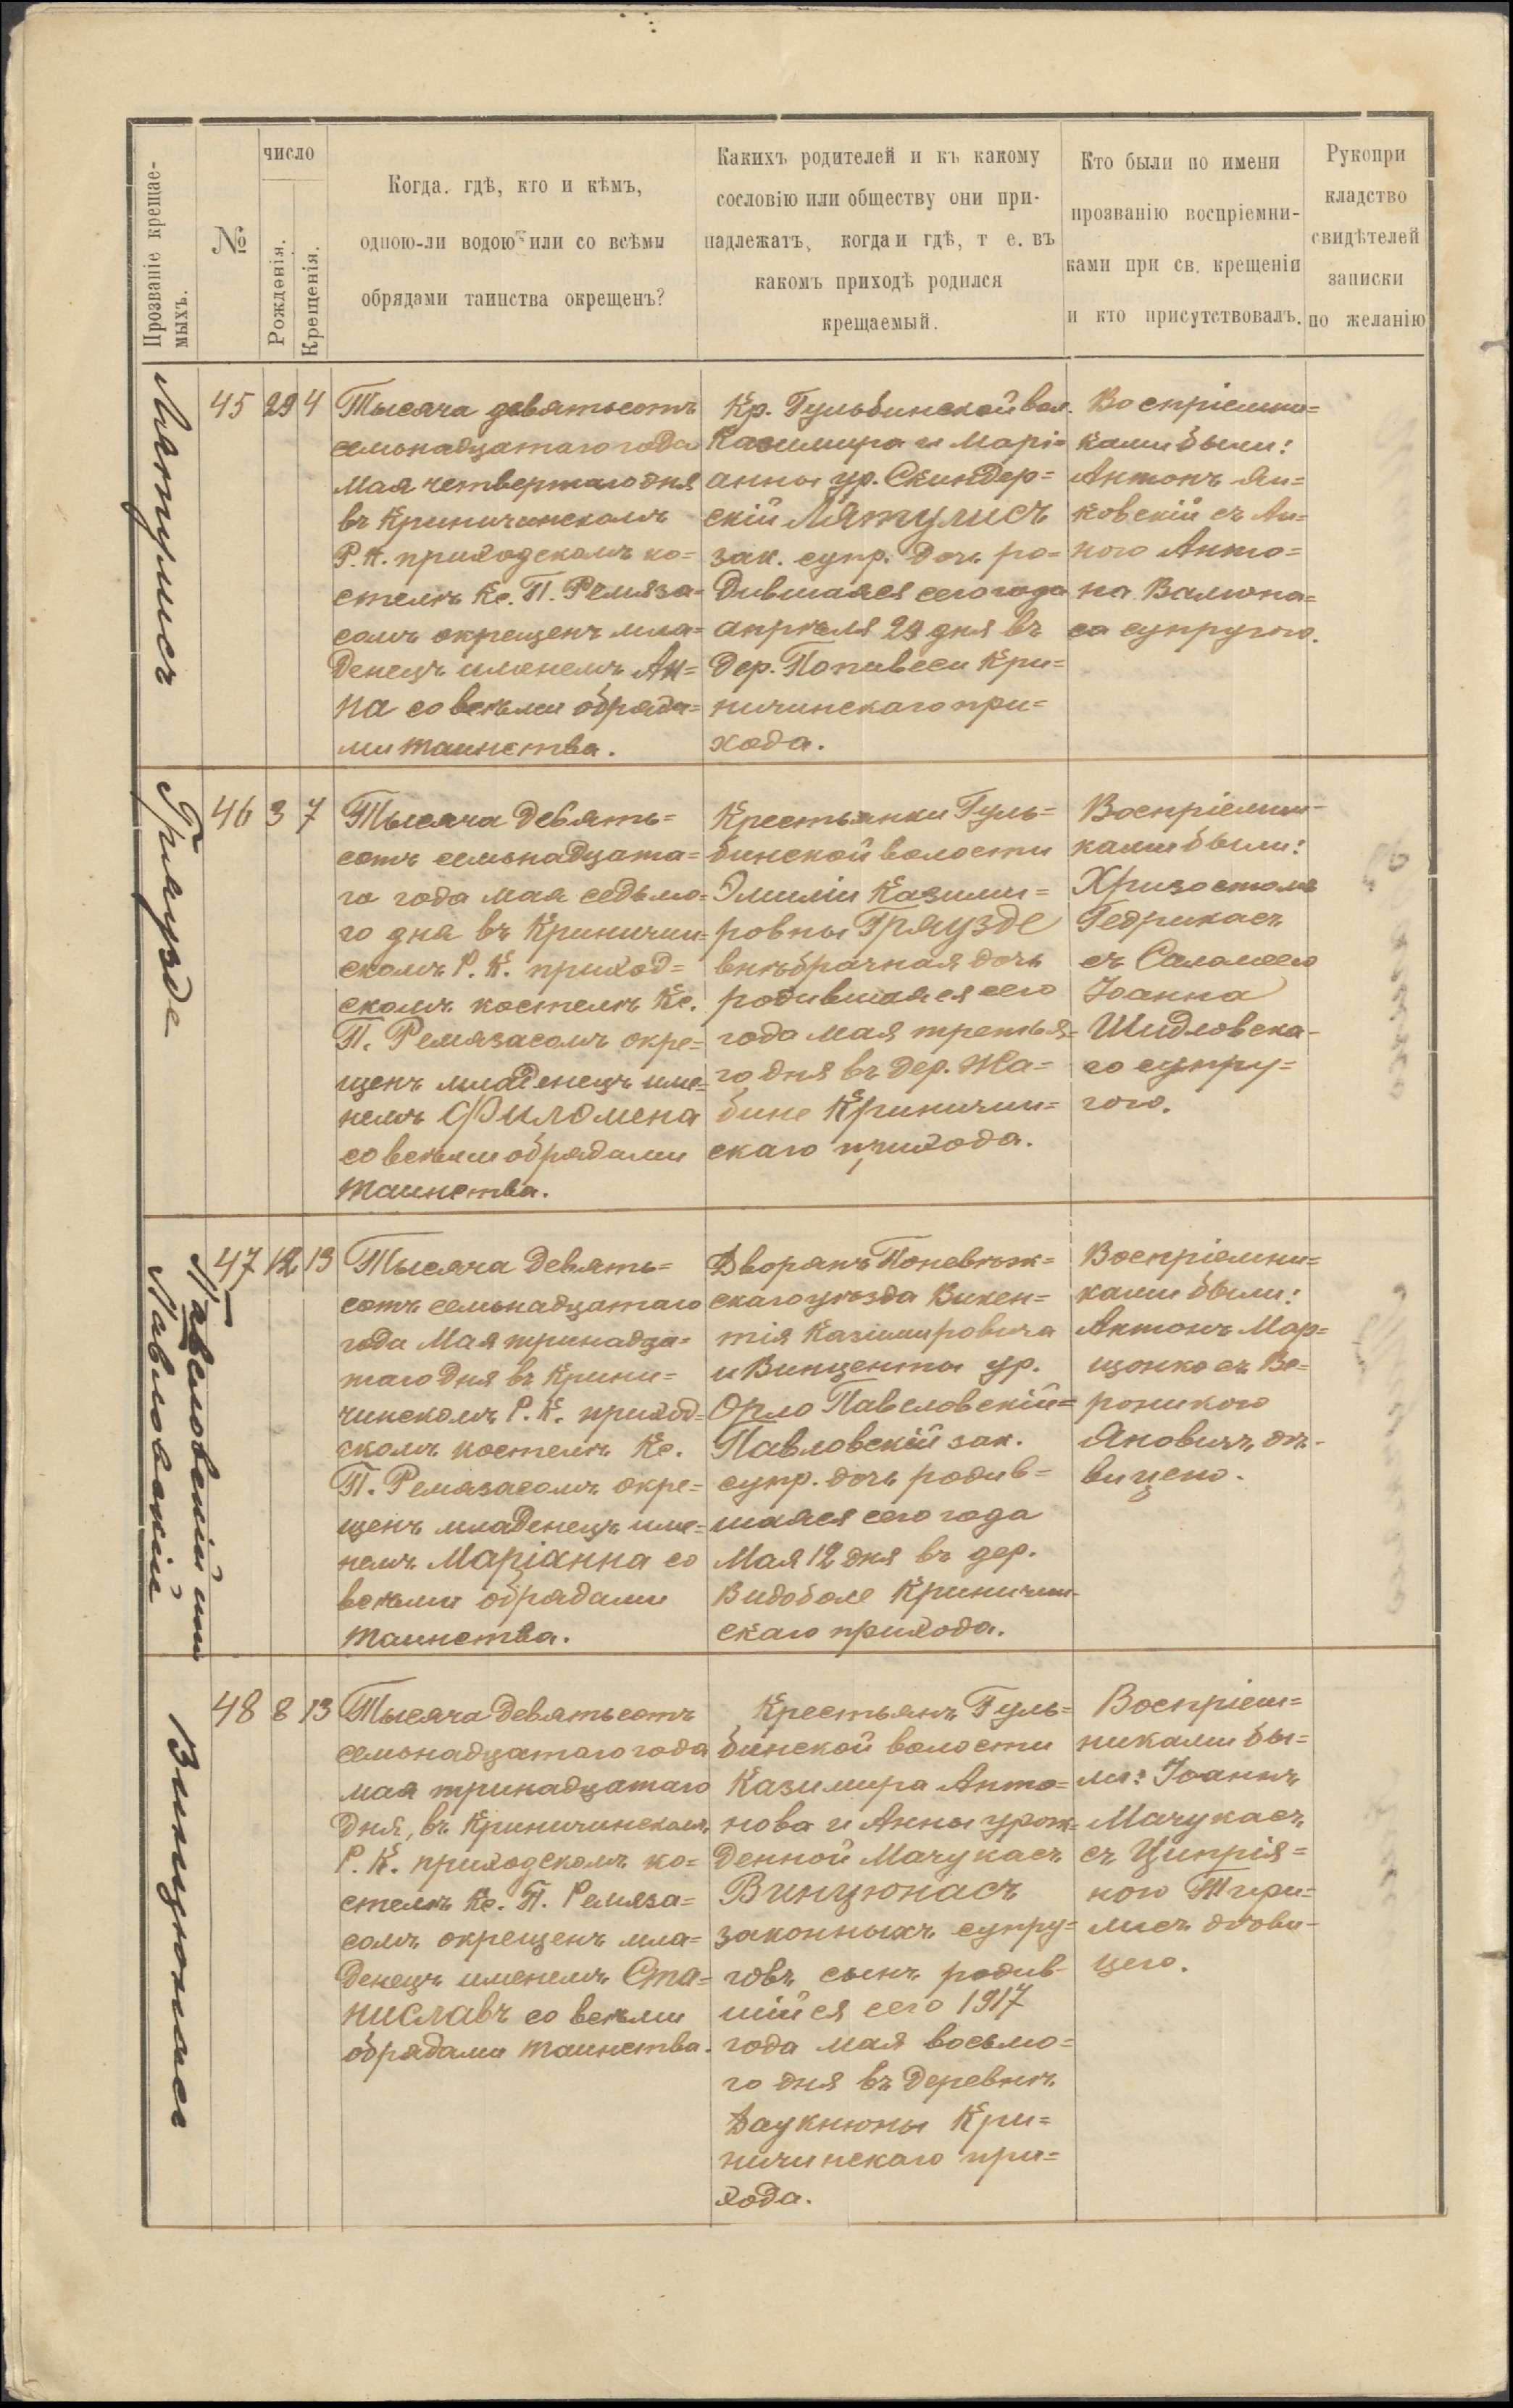 Прозваніе крещае-
мыхъ.
№
число
Рожденія.
Крещенія.
Когда. гдѣ, кто и кѣмъ,
одною-ли водою или со всѣми
обрядами таинства окрещенъ?
Какихъ родителей и къ какому
сословію или обществу они при-
надлежатъ, когда и гдѣ, т е. въ
какомъ приходѣ родился
крещаемый.
Кто были по имени
прозванію воспріемни-
ками при св. крещеніи
и кто присутствовалъ.
Рукопри
кладство
свидѣтелей
записки
по желанію
Лятулисъ
45 29 4
Тысяча девятьсотъ
семьнадцатаго года
мая четвертаго дня
въ Криничинскомъ
Р. К. приходскомъ ко=
стелѣ Кс. П. Ремяза=
сомъ окрещенъ мла=
денецъ именемъ Ан=
на со всѣми обряда=
ми таинства.
Кр. Гульбинской вол.
Казимира и Марі=
анны ур. Скиндер=
скій Лятулисъ
зак. супр. дочь ро=
дившаяся сего года
апрѣля 29 дня въ
дер. Попивеси Кри=
ничинскаго при=
хода.
Воспріемни=
ками были:
Антонъ Ян=
ковскій съ Ан=
ною Анто=
на Валюна=
са супругою.
Гряузде
46 3 7
Тысяча девять=
сотъ семьнадцата=
го года мая седьмо=
го дна въ Криничин=
скомъ Р. К. приход=
скомъ костелѣ Кс.
П. Ремязасомъ окре=
щенъ младенецъ име=
немъ Филомена
со всѣми обрядами
таинства.
Крестьянки Гуль=
бинской волости
Эмиліи Казими=
ровны Гряузде
внѣбрачная дочь
родившаяся сего
года мая третья=
го дня въ дер. Жа=
бине Криничин=
скаго прихода.
Воспріемни-
ками были:
Хризостомъ
Гедрикасъ
съ Саломеею
Іоанна
Шидловска-
го супру=
гою.
Павеловскій или
Павловскій
47 12 13
Тысяча девять=
сотъ семьнадцатаго
года Мая тринадца=
таго дня въ Крини=
чинскомъ Р. К. приход=
скомъ костелѣ Кс.
П. Ремязасомъ окре=
щенъ младенецъ име=
немъ Маріанна со
всѣми обрядами
таинства.
Дворянъ Поневѣж=
скаго уѣзда Викен=
тія Казимировича
и Винценты ур.
Орло Павеловскій=
Павловскій зак.
супр. дочь родив=
шаяся сего года
Мая 12 дня въ дер.
Видоболе Криничин-
скаго прихода.
Воспріемни=
ками были:
Антонъ Мар=
цонко съ Ве=
роникою
Яновичъ дѣ-
вицею.
Винцюнасъ
48 8 13
Тысяча девятьсотъ
семьнадцатаго года
мая тринадцатаго
дня, въ Криничинскомъ
Р. К. приходскомъ ко=
стелѣ Кс. П. Ремяза=
сомъ окрещенъ мла=
денецъ именемъ Ста=
ниславъ со всѣми
обрядами таинства.
Крестьянъ Гуль=
бинской волости
Казимира Анто=
нова и Анны урож=
денной Мачукасъ
Винцюнасъ
законныхъ супру=
говъ сынъ родив-
шійся сего 1917
года мая восьмо=
го дня въ деревнѣ
Даукнюны Кри=
ничинскаго при=
хода.
Воспріем=
никами бы=
ли: Іоаннъ
Мачукасъ
съЦипрія=
ною Тири=
лисъ дѣви-
цею.